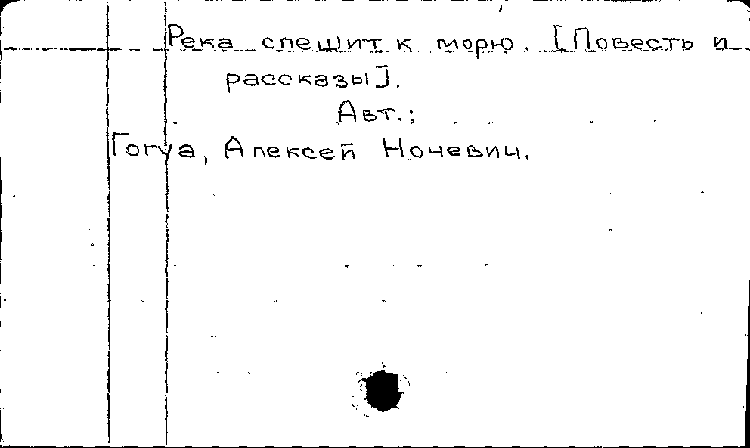 Река спешит к морю. [Повесть и
рассказы].
Авт.:
Гогуа, Алексей Ночевич.